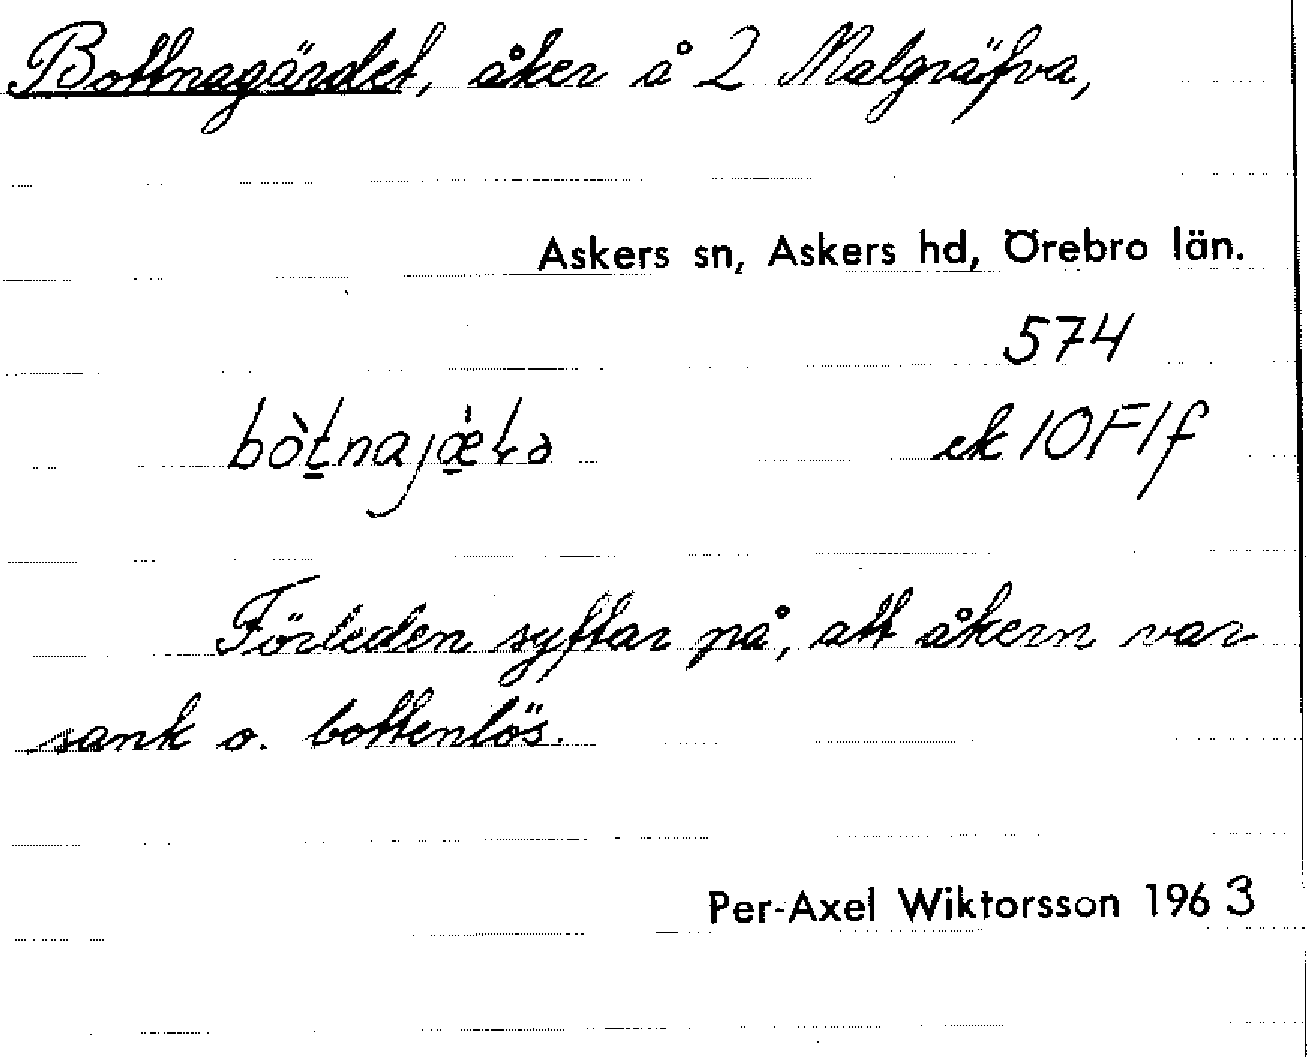 Bottnagärdet, åker å 2 Malgräfva,
Askers sn, Askers hd, Örebro län.
574
ek 10F1f
Förleden syftar på, att åkern var
sank o. bottenlös.
Per-Axel Wiktorsson 1963